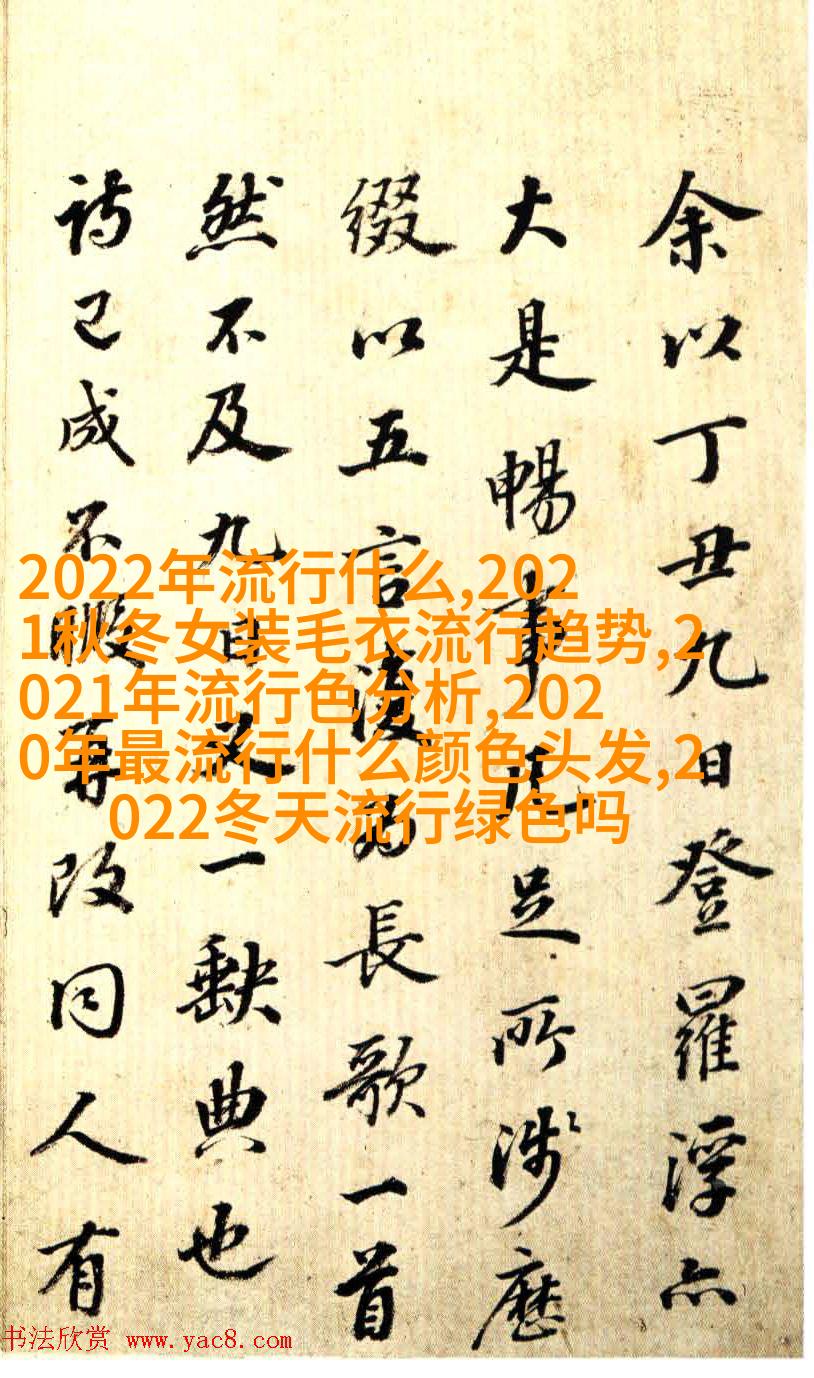 余以丁丑九日登羅浮亦
大是暢事凡足所涉歷
缀以五言為長歌一首
然不及九日又一缺典也
詩已成不暇再改同人有
2022年流行什么,202
1秋冬女装毛衣流行趋势,2
021年流行色分析,202
0年最流行什么颜色头发,2
022冬天流行绿色吗
书法欣赏 www.yac8.com